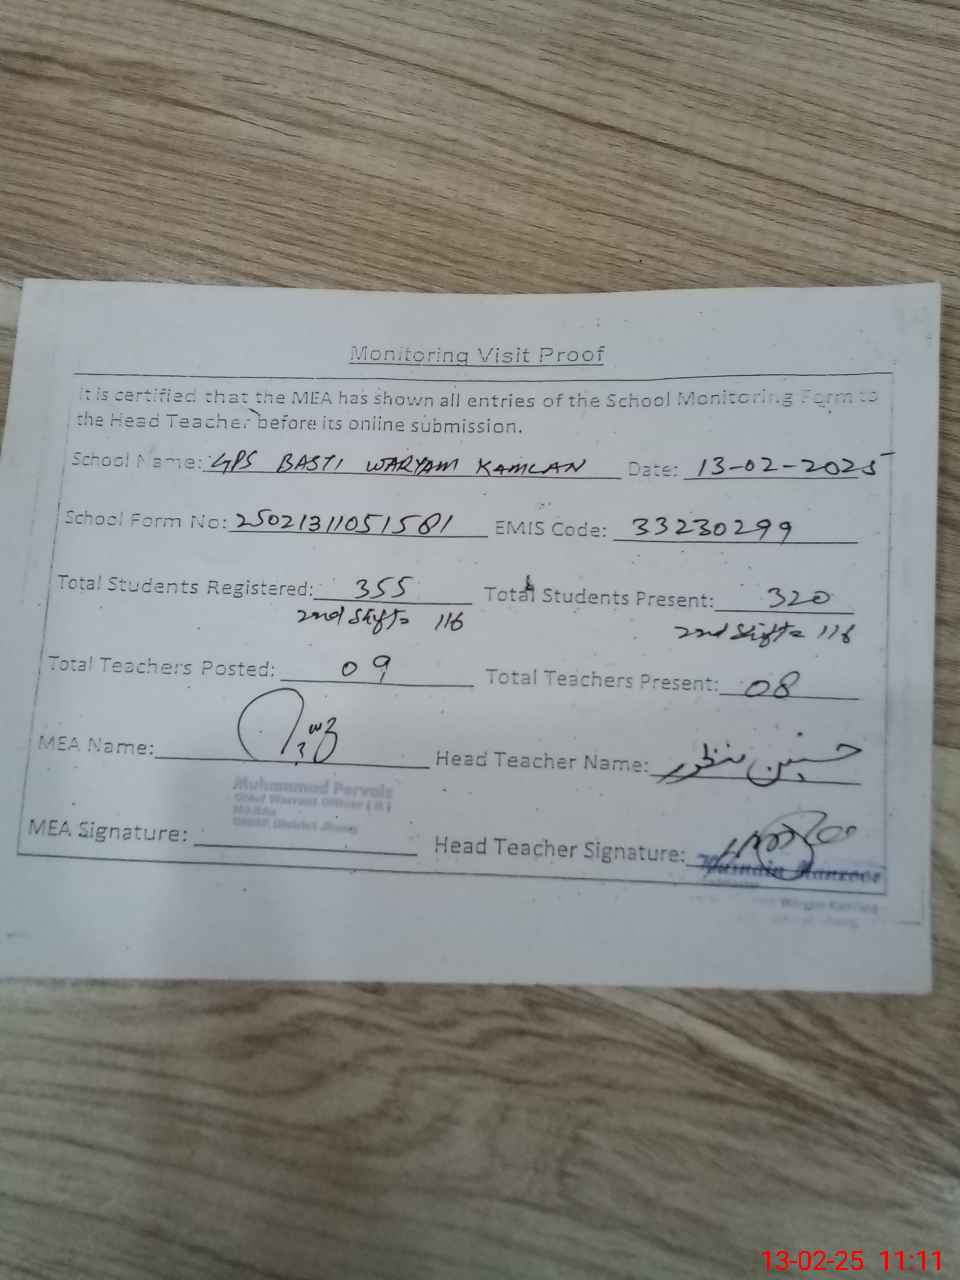 Monitoring Visit Proof
It is certified that the MEA has shown all entries of the School Monitoring Form to
the Head Teacher before its online submission.
School Name: GPS BASTI WARYAM KAMLAN Date: 13-02-2025
School Form No: 25021311051581 EMIS Code: 33230299
Total Students Registered: 355 Total Students Present: 320
2nd Shift= 116 2nd Shift= 116
Total Teachers Posted: 09 Total Teachers Present: 08
MEA Name: Head Teacher Name: حسنین منظور
Muhammad Pervaiz
Chief Warrant Officer ( R )
District Jhang
MEA Signature: Head Teacher Signature:
Husnain Manzoor
13-02-25 11:11